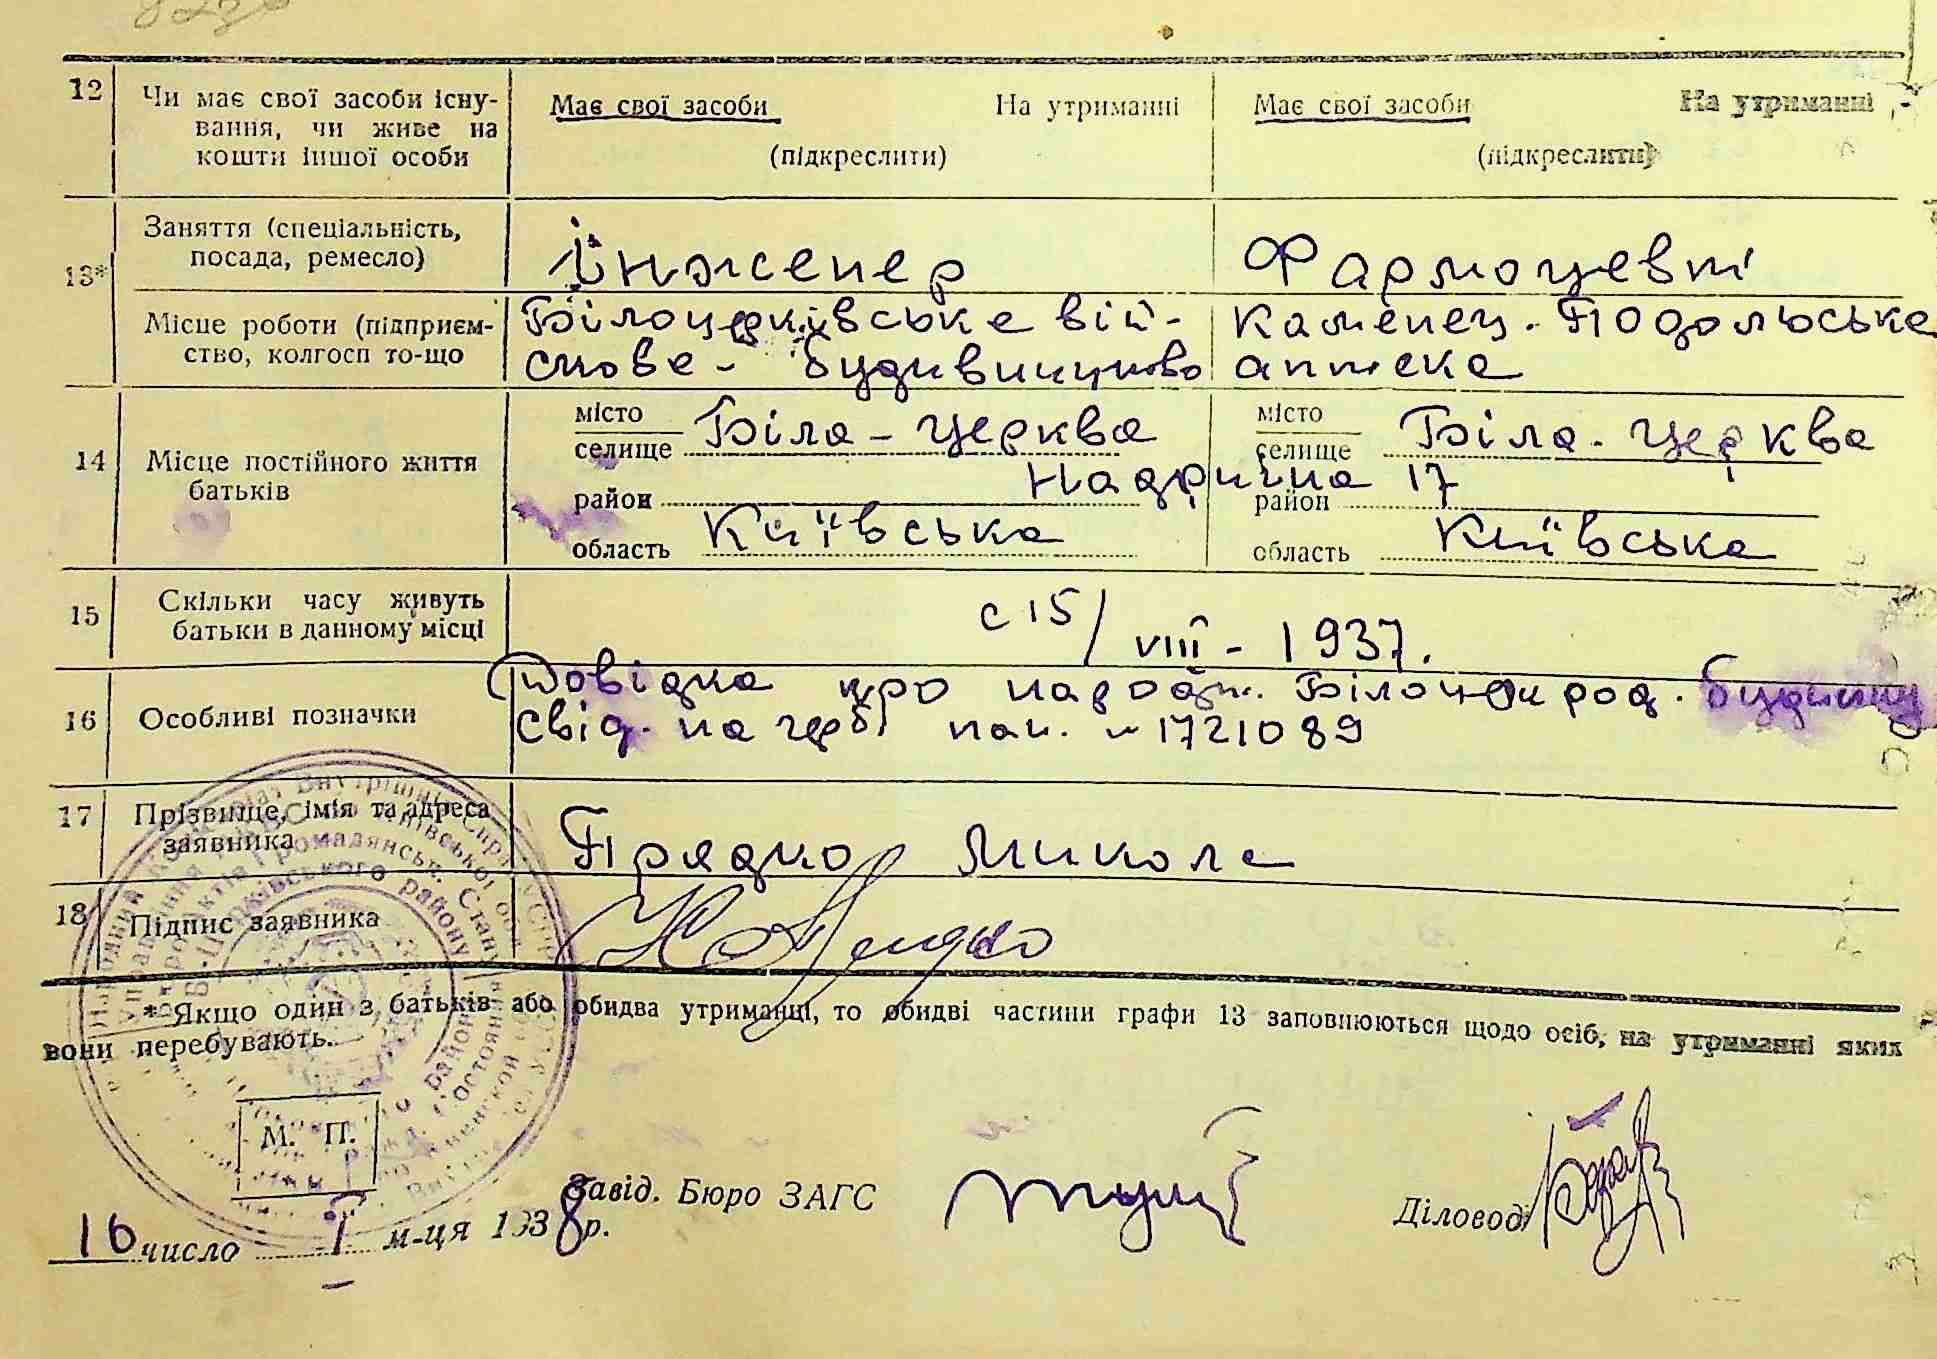 12 Чи має свої засоби існу- Має свої засоби На утриманні Має свої засоби На утриманні
вання, чи живе на
кошти іншої особи (підкреслити) (підкреслити)
Заняття (спеціальність,
посада, ремесло) Інженер Фармоцевт
13*
Місце роботи (підприєм- Білоцерківське вій- Каменец-Подольська
ство, колгосп то-що скове - будивництво аптека
місто Біла - церква місто Біла - церква
селище селище
14 Місце постійного життя
батьків район Надрична 17 район
область Київська область Київська
15 Скільки часу живуть
батьки в данному місці с 15/VIII - 1937.
Довідка про народж. род. будинку
16 Особливі позначки свід. на 1721089
17 Прізвище, імя та адреса
заявника Прядко Микола
18 Підпис заявника
* Якщо один з батьків або обидва утриманці, то обидві частини графи 13 заповнюються щодо осіб, на утриманні яких
вони перебувають.
М. П.
Завід. Бюро ЗАГС Діловод
16 число I м-ця 1938 р.